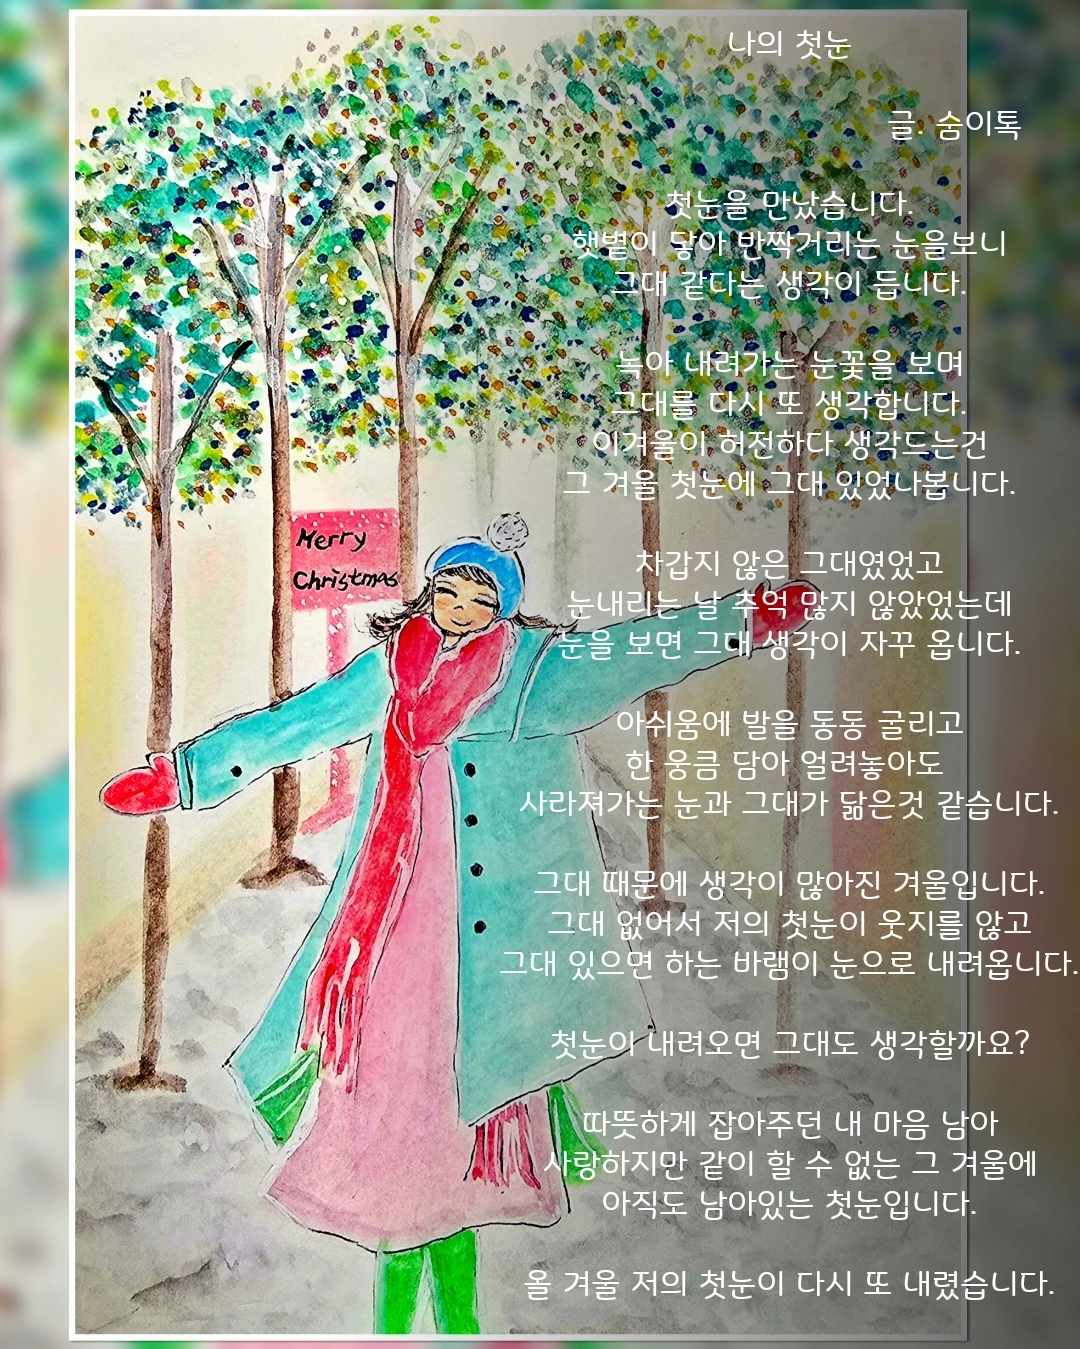 나의 첫눈
글. 숨이톡
첫눈을 만났습니다.
햇볕이 닿아 반짝거리는 눈을보니
그대 같다는 생각이 듭니다.
녹아 내려가는 눈꽃을 보며
그대를 다시 또 생각합니다.
이겨울이 허전하다 생각드는건
그 겨울 첫눈에 그대 있었나봅니다.
Merry
Christmas
차갑지 않은 그대였었고
눈내리는 날 추억 많지 않았었는데
눈을 보면 그대 생각이 자꾸 옵니다.
아쉬움에 발을 동동 굴리고
한 웅큼 담아 얼려놓아도
사라져가는 눈과 그대가 닮은것 같습니다.
그대 때문에 생각이 많아진 겨울입니다.
그대 없어서 저의 첫눈이 웃지를 않고
그대 있으면 하는 바램이 눈으로 내려옵니다.
첫눈이 내려오면 그대도 생각할까요?
따뜻하게 잡아주던 내 마음 남아
사랑하지만 같이 할 수 없는 그 겨울에
아직도 남아있는 첫눈입니다.
올 겨울 저의 첫눈이 다시 또 내렸습니다.